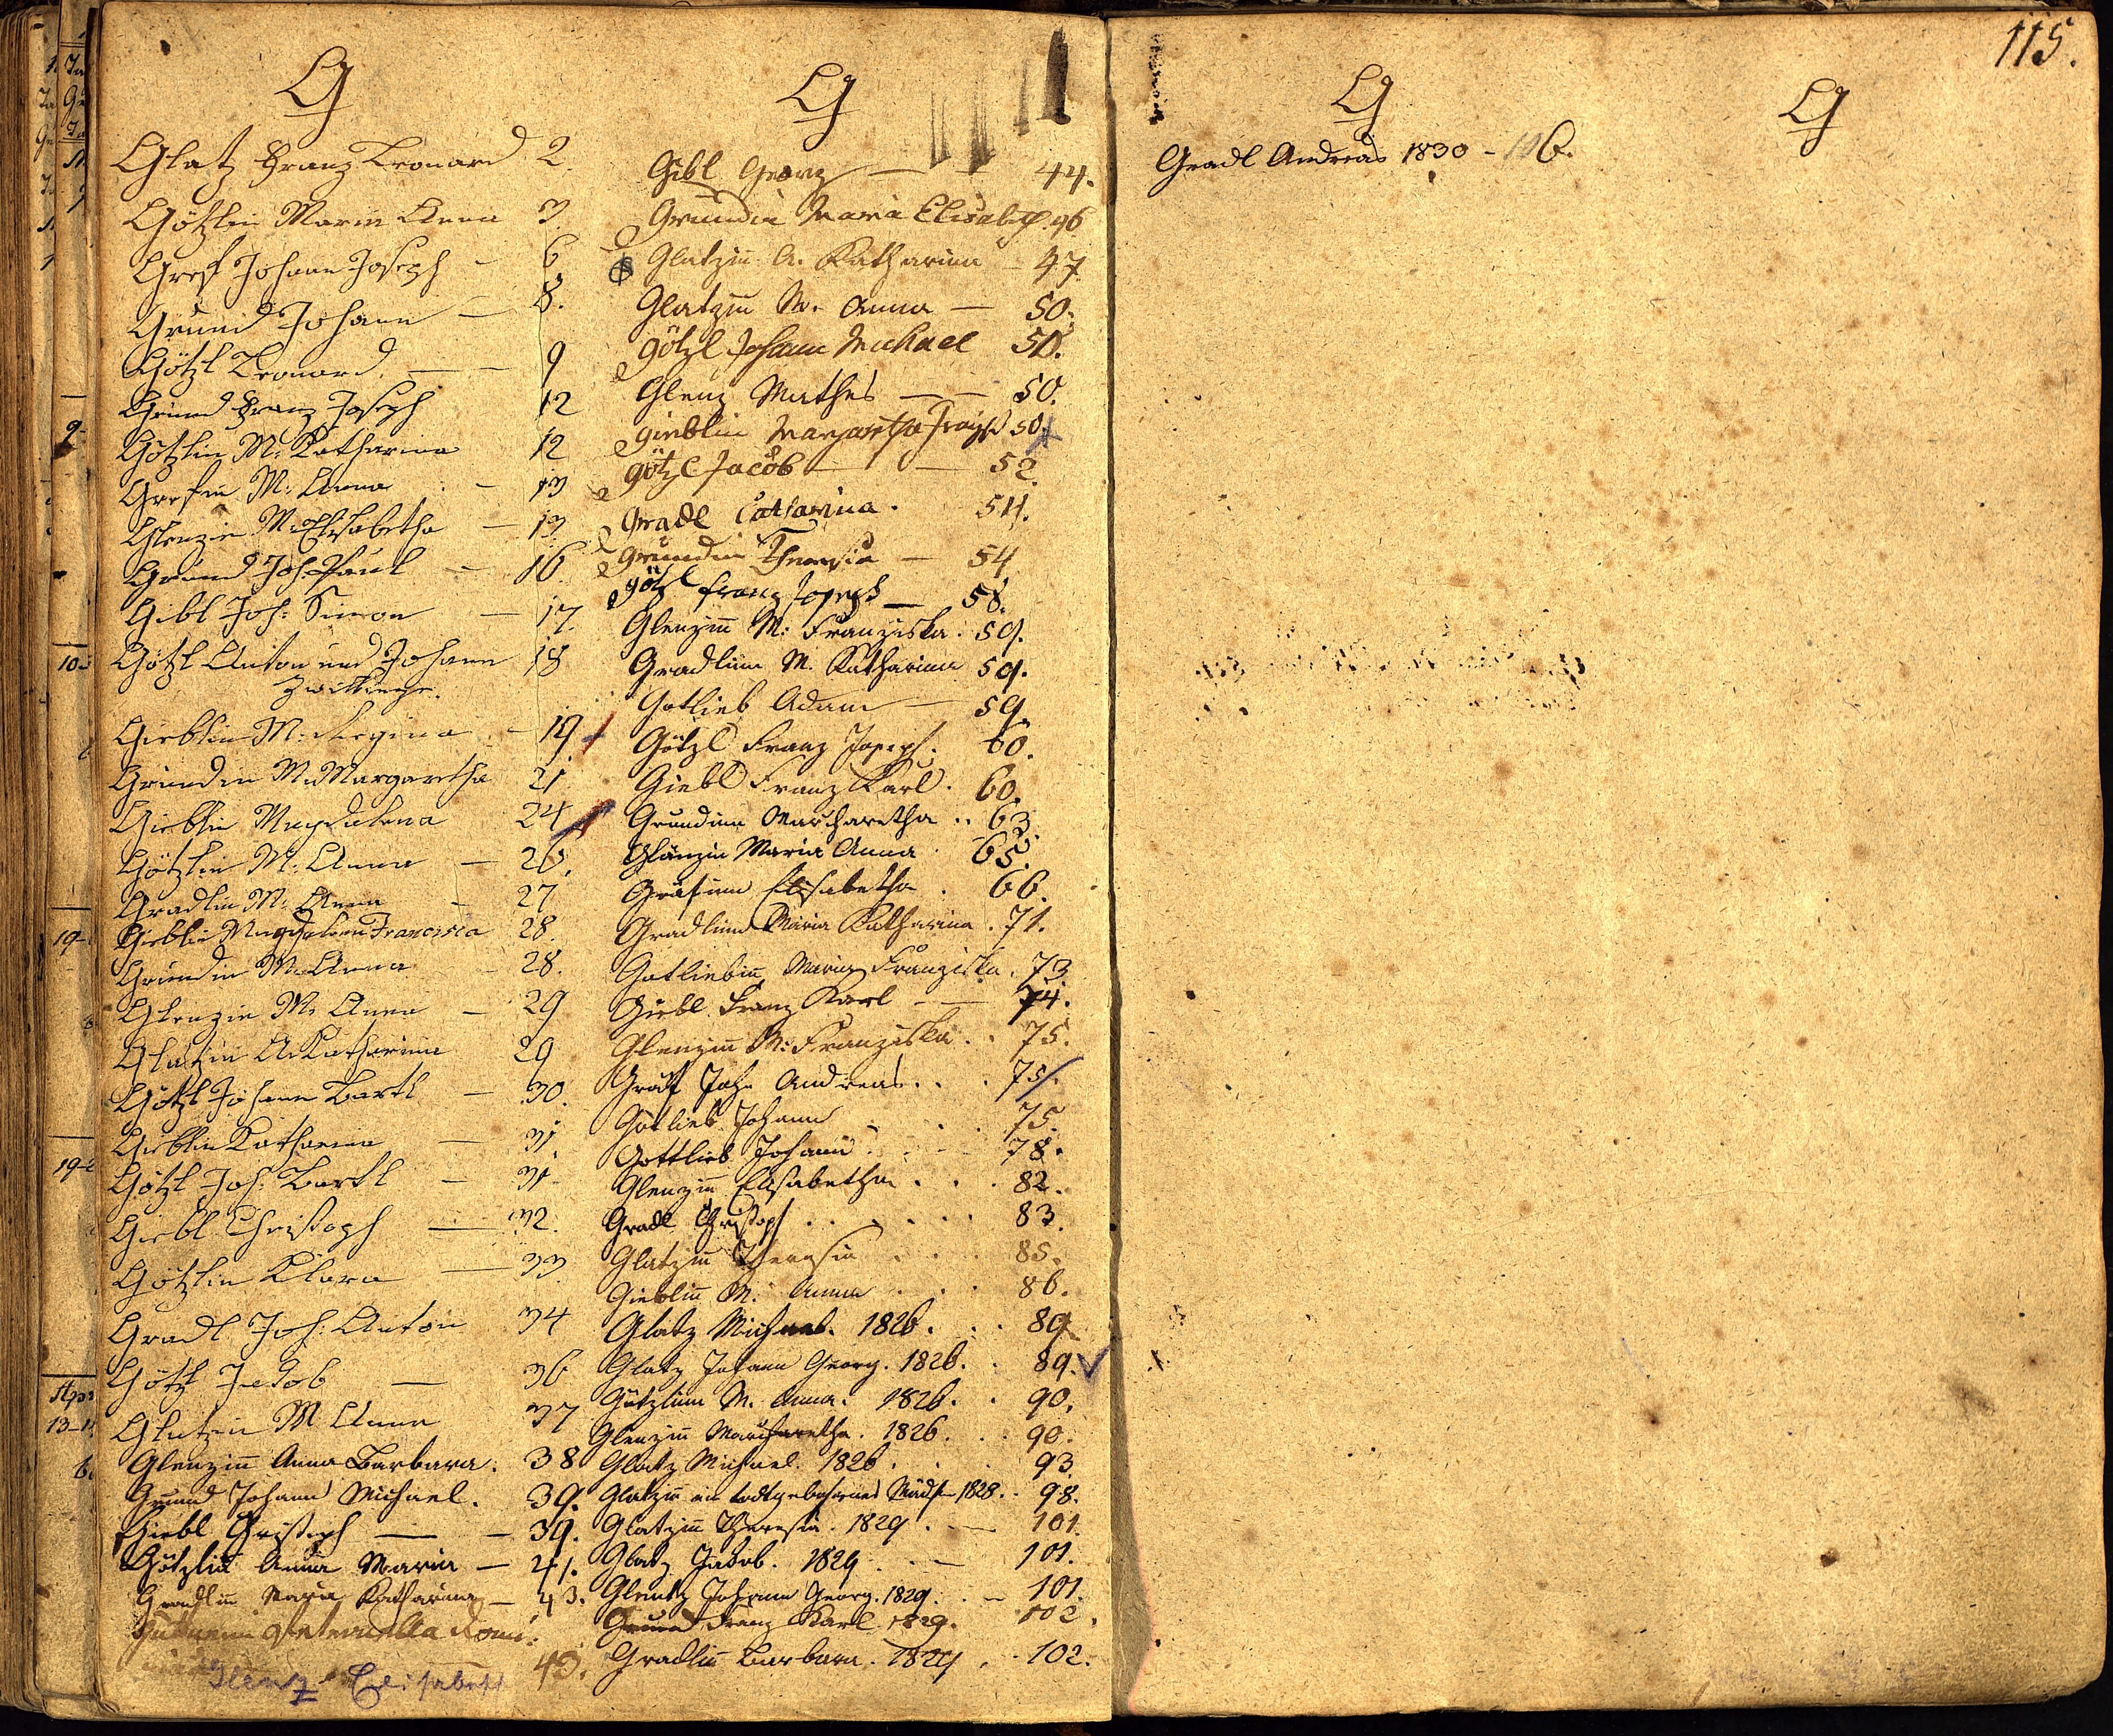 115.
G
Glatz Franz Leonard 2.
Götzlin Maria Anna 3.
Gref Johann Joseph - 6
Grund Johann — 8.
Götzl Leonard. — - 9
Grund Franz Joseph 12
Götzlin M: Katharina 12
Grefin M: Anna - 13
Glenzin M: Elisabetha - 13
Grund Joh: Paul - 16.
Gibl Joh: Simon — 17.
Götzl Anton und Johann 18
Zwillinge.
Gieblin M: Regina - 19.
Grundin M: Margaretha 21
Gieblin Magdalena 24
Götzlin M: Anna — 26.
Gradlin M: Anna - 27
Gieblin Magdalena Francisca 28.
Grundin M: Anna - 28.
Glenzin M: Anna - 29
Glatzin A: Katharina 29
Götzl Johann Bartl - 30.
Gieblin Katharina — 31
Götzl Joh: Bartl - 31
Giebl Christoph — 32.
Götzlin Klara — 33
Gradl Joh: Anton 34
Götzl Jakob — 36
Glatzin M Anna 37
Glenzin Anna Barbara. 38
Grund Johann Michael. 39.
Giebl Christoph — - 39.
Götzlin Anna Maria - 41.
Gradlin Maria Katharina - 43.
43.
Glenz Elisabeth
G
Gibl Georg — 44.
Grundin Maria Elisabeth. 46
Glatzin A. Katharina - 47
Glatzin M. Anna — 50.
Götzl Johann Michael 50.
Glenz Mathes — - 50.
Gieblin Margaretha 50.
Götzl Jacob — - 52.
Gradl Catharina. 54.
Grundin Theresia — 54
Götzl Franz Joseph — 58.
Glenzin M: Franziska. 59.
Gradlinn M. Katharina 59.
Gotlieb Adam — 59.
Götzl Franz Joseph. 60.
Giebl Franz Karl. 60.
Grundinn Marcharetha .. 63.
Glänzin Maria Anna 65.
Gräfinn Elisabetha . 66.
Gradlinn Maria Katharina . 71.
Gotliebin Maria Franziska. 73.
Giebl Franz Karl - — 74.
Glenzin M: Franziska. . 75.
Gräf Joh: Andreas . . . 75.
Gotlieb Johann . . 75.
Gottlieb Johann . . - 78.
Glenzin Elisabetha . . . 82.
Gradl Christoph . . . . . . 83.
Glatzin Theresia . . . 85.
Gieblin M. Anna . . . 86.
Glatz Michael. 1826. . . 89.
Glatz Johann Georg. 1826. . 89.
Götzlinn M. Anna. 1826. . 90.
Glenzin Marcharetha. 1826. . . 90.
Glatz Michael. 1826. . . 93.
Glatzin ein todtgebohrnes Mädch 1828. . 98.
Glatzin Theresia. 1829. — 101.
Glatz Jakob. 1829. . — 101.
Glentz Johann Georg. 1829. . - 101.
Grund Franz Karl. 1829. 102.
Gradlin Barbara. 1829. . 102.
G
Gradl Andreas 1830 - 106.
G